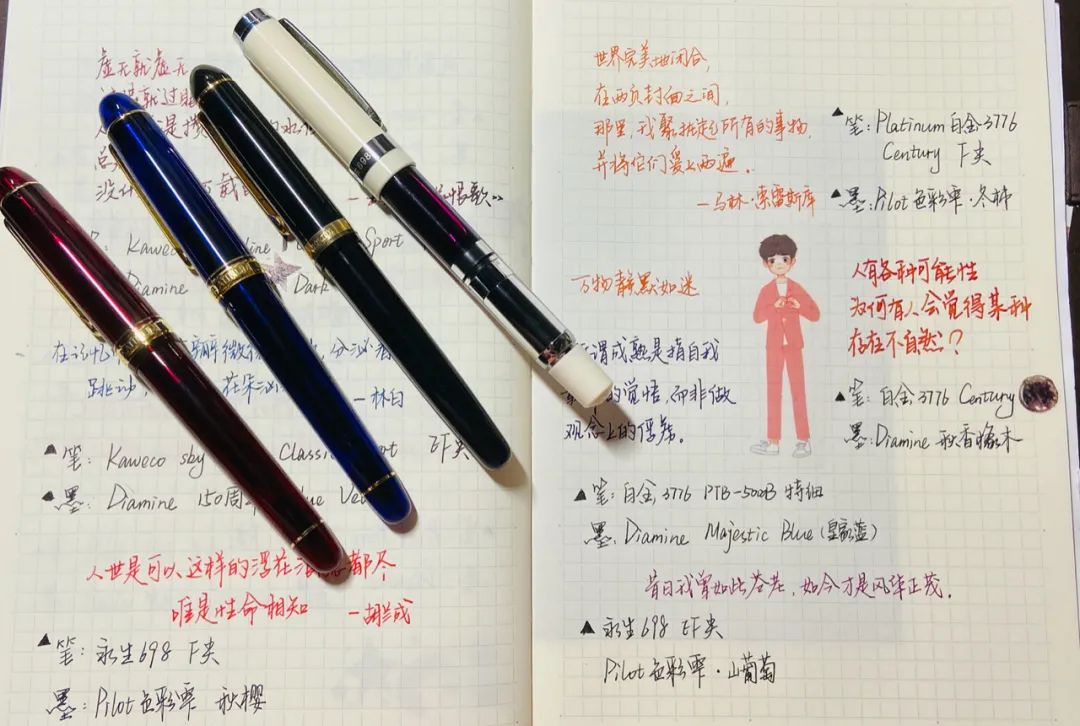 虚无就虚无
就过
是
没什
恨歌..
Kaweco line Sport
Diamine Dark
在记忆 微 分泌着
跳动, 花朵
—林白
▲笔: Kaweco sky Classic Sport EF尖
▲墨: Diamine 150周年 Blue Vel
人世是可以这样的浮花浪蕊都尽
唯是性命相知 —胡兰成
▲笔: 永生698 F尖
墨: Pilot色彩雫 秋樱
698
世界完美地闭合,
在两页封面之间,
那里,我聚拢起所有的事物,
并将它们爱上两遍。
—马林·索雷斯库
▲笔: Platinum 白金3776
Century F尖
▲墨: Pilot色彩雫·冬柿
万物静默如迷
人有各种可能性
为何有人会觉得某种
存在不自然?
谓成熟是指自我
的觉悟,而非做
观念上的俘虏。
▲笔: 白金3776 Century
墨: Diamine 秋香橡木
▲笔: 白金3776 PTB-5000B 特细
墨: Diamine Majestic Blue(皇家蓝)
昔日我曾如此苍老,如今才是风华正茂.
▲永生698 EF尖
Pilot色彩雫·山葡萄